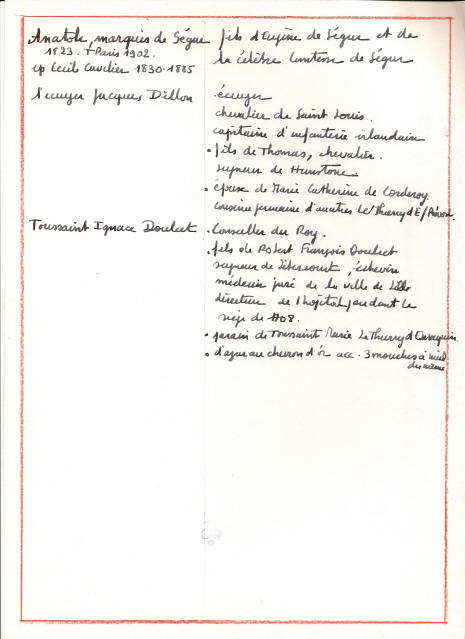 Anatole, marquis de Ségur fils d'Eugène de Ségur et de
1823. + Paris 1902. la célèbre Comtesse de Ségur
ep Cecile Cuvelier 1830-1885
l'ecuyer Jacques Dillon . écuyer
chevalier de Saint Louis.
capitaine d'infanterie irlandaise
. fils de Thomas, chevalier.
seigneur de
. épouse de Marie Catherine de Corderoy
cousine germaine d'autres Le Thierry d'E/
Toussaint Ignace Doulcet . Conseiller du Roy.
. fils de Robert François Doulcet
seigneur de , échevin
médecin juré de la ville de Lille
directeur de l'hôpital pendant le
siège de 1708.
. parain de Toussaint Marie Le Thierry d'
. d'azur au chevron d'or acc. 3 mouches à miel
du même